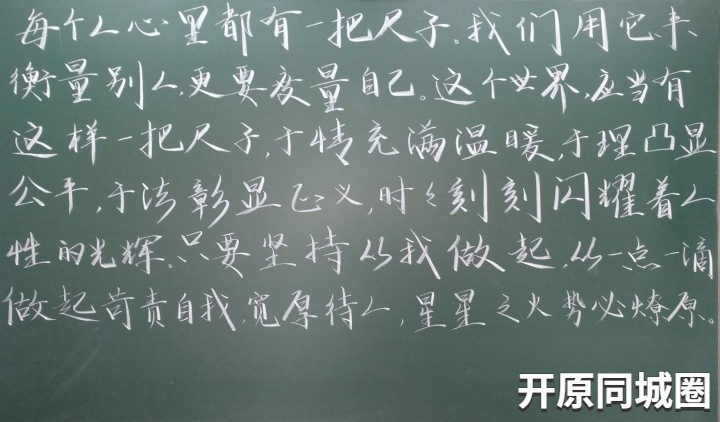 每个人心里都有一把尺子。我们用它来
衡量别人,更要度量自己。这个世界,应当有
这样一把尺子,于情充满温暖,于理凸显
公平,于法彰显正义,时时刻刻闪耀着人
性的光辉。只要坚持从我做起,从一点一滴
做起苛责自我,宽厚待人,星星之火势必燎原。
开原同城圈